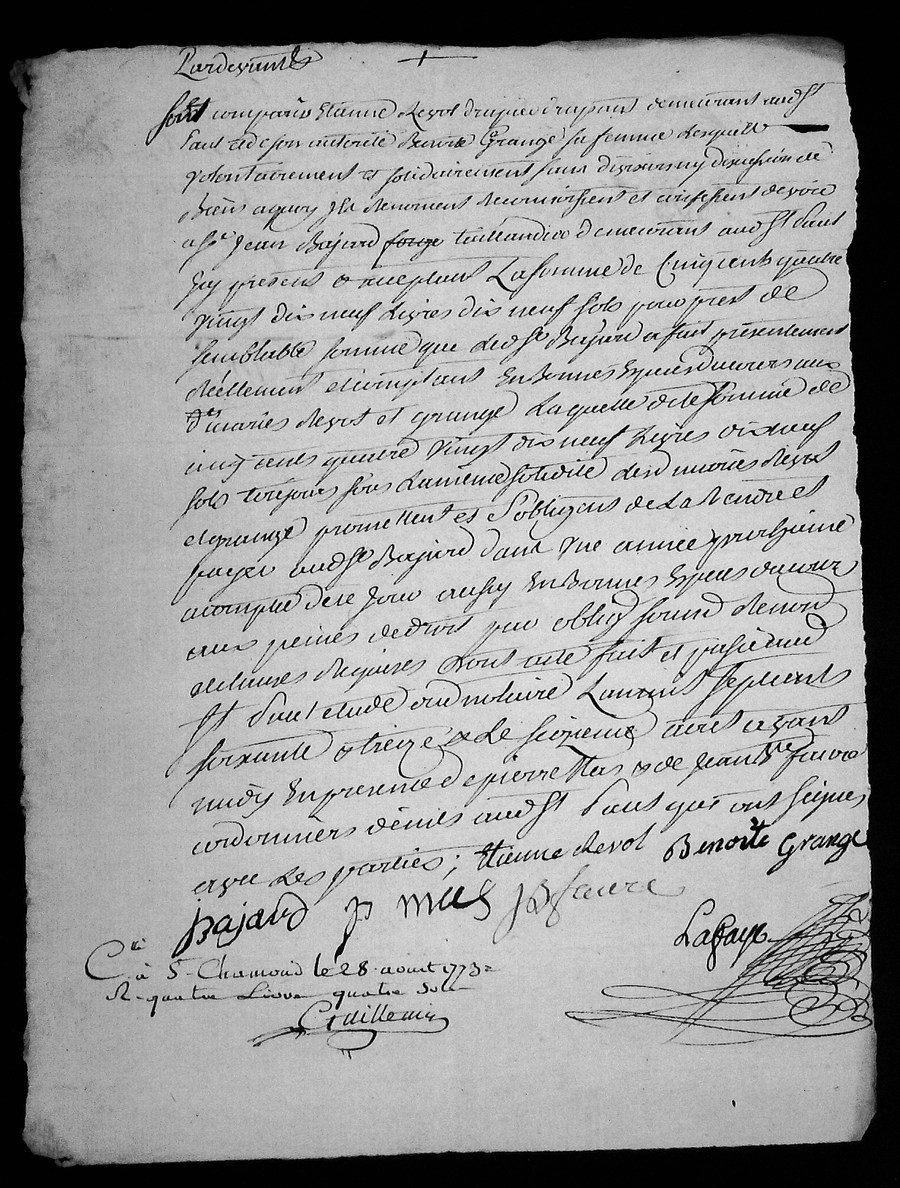 Pardevant les
sont comparus Etienne Revol drapier drapant demeurant aud St
Paul et de son autorité Benoite Grange sa femme Lesquels
volontairement et solidairement sans division ny discussion de
Biens a quoy ils Renoncent Reconnoissent et confessent devoir
a Sr Jean Bajard forge taillandier demeurant aud St Paul
Icy present & acceptant La somme de Cinq cents quatre
vingt dix neuf Livres dix neuf sols pour prest de
semblable somme que led Sr Bajard a fait presentement
Réellement et comptant En Bonnes Especes du cours aux
d. mariés Revol et grange Laquelle dite somme de
cinq cents quatre vingt dix neuf Livres dix neuf
sols toujours sous La même solidité lesd mariés Revol
et grange promettent et s'obligent de La Rendre et
payer aud Sr Bajard dans une année prochaine
a compter de ce jour aussy En Bonnes Especes du cours
aux peines de droit par oblig soumis Renon
et clauses Requises dont acte fait et passé aud
St Paul etude dud notaire L'an mil sept cents
soixante & treize & Le seizieme aout avant
midy En presence de pierre Mas & de Jean Bte faure
cordonniers demts aud St Paul qui ont signés
avec Les parties; Etienne Revol Benoite Grange
Bajard p mas JB faure
Laffay
Clé à St Chamond le 28 aoust 1773
R. quatre Livres quatre Sols
Guillemin